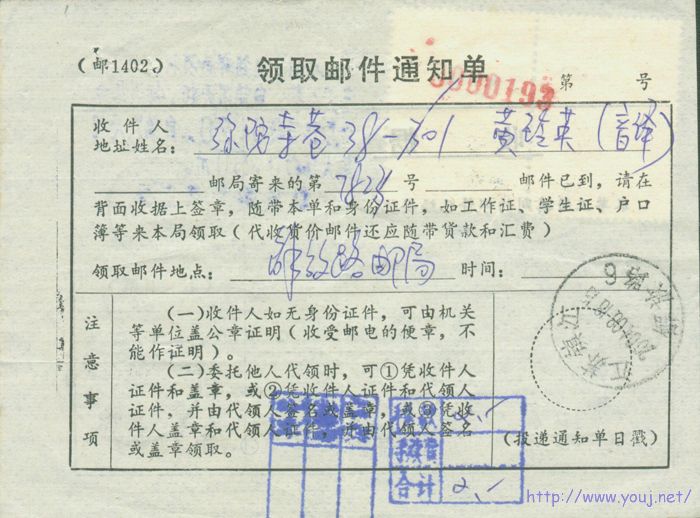 (邮1402)
领取邮件通知单
0000193
第 号
收件人
地址姓名: 38-301 黄玲英(音译)
邮局寄来的第 号 邮件已到,请在
背面收据上签章,随带本单和身份证件,如工作证、学生证、户口
簿等来本局领取(代收货价邮件还应随带货款和汇费)
领取邮件地点: 解放路邮局 时间:
注意事项
(一)收件人如无身份证件,可由机关
等单位盖公章证明(收受邮电的便章,不
能作证明)。
(二)委托他人代领时,可①凭收件人
证件和盖章,或②凭收件人证件和代领人
证件,并由代领人签名或盖章,或③凭收
件人盖章和代领人证件,并由代领人签名
或盖章领取。
(投递通知单日戳)
江苏镇江
合计 2.1
http://www.youj.net/